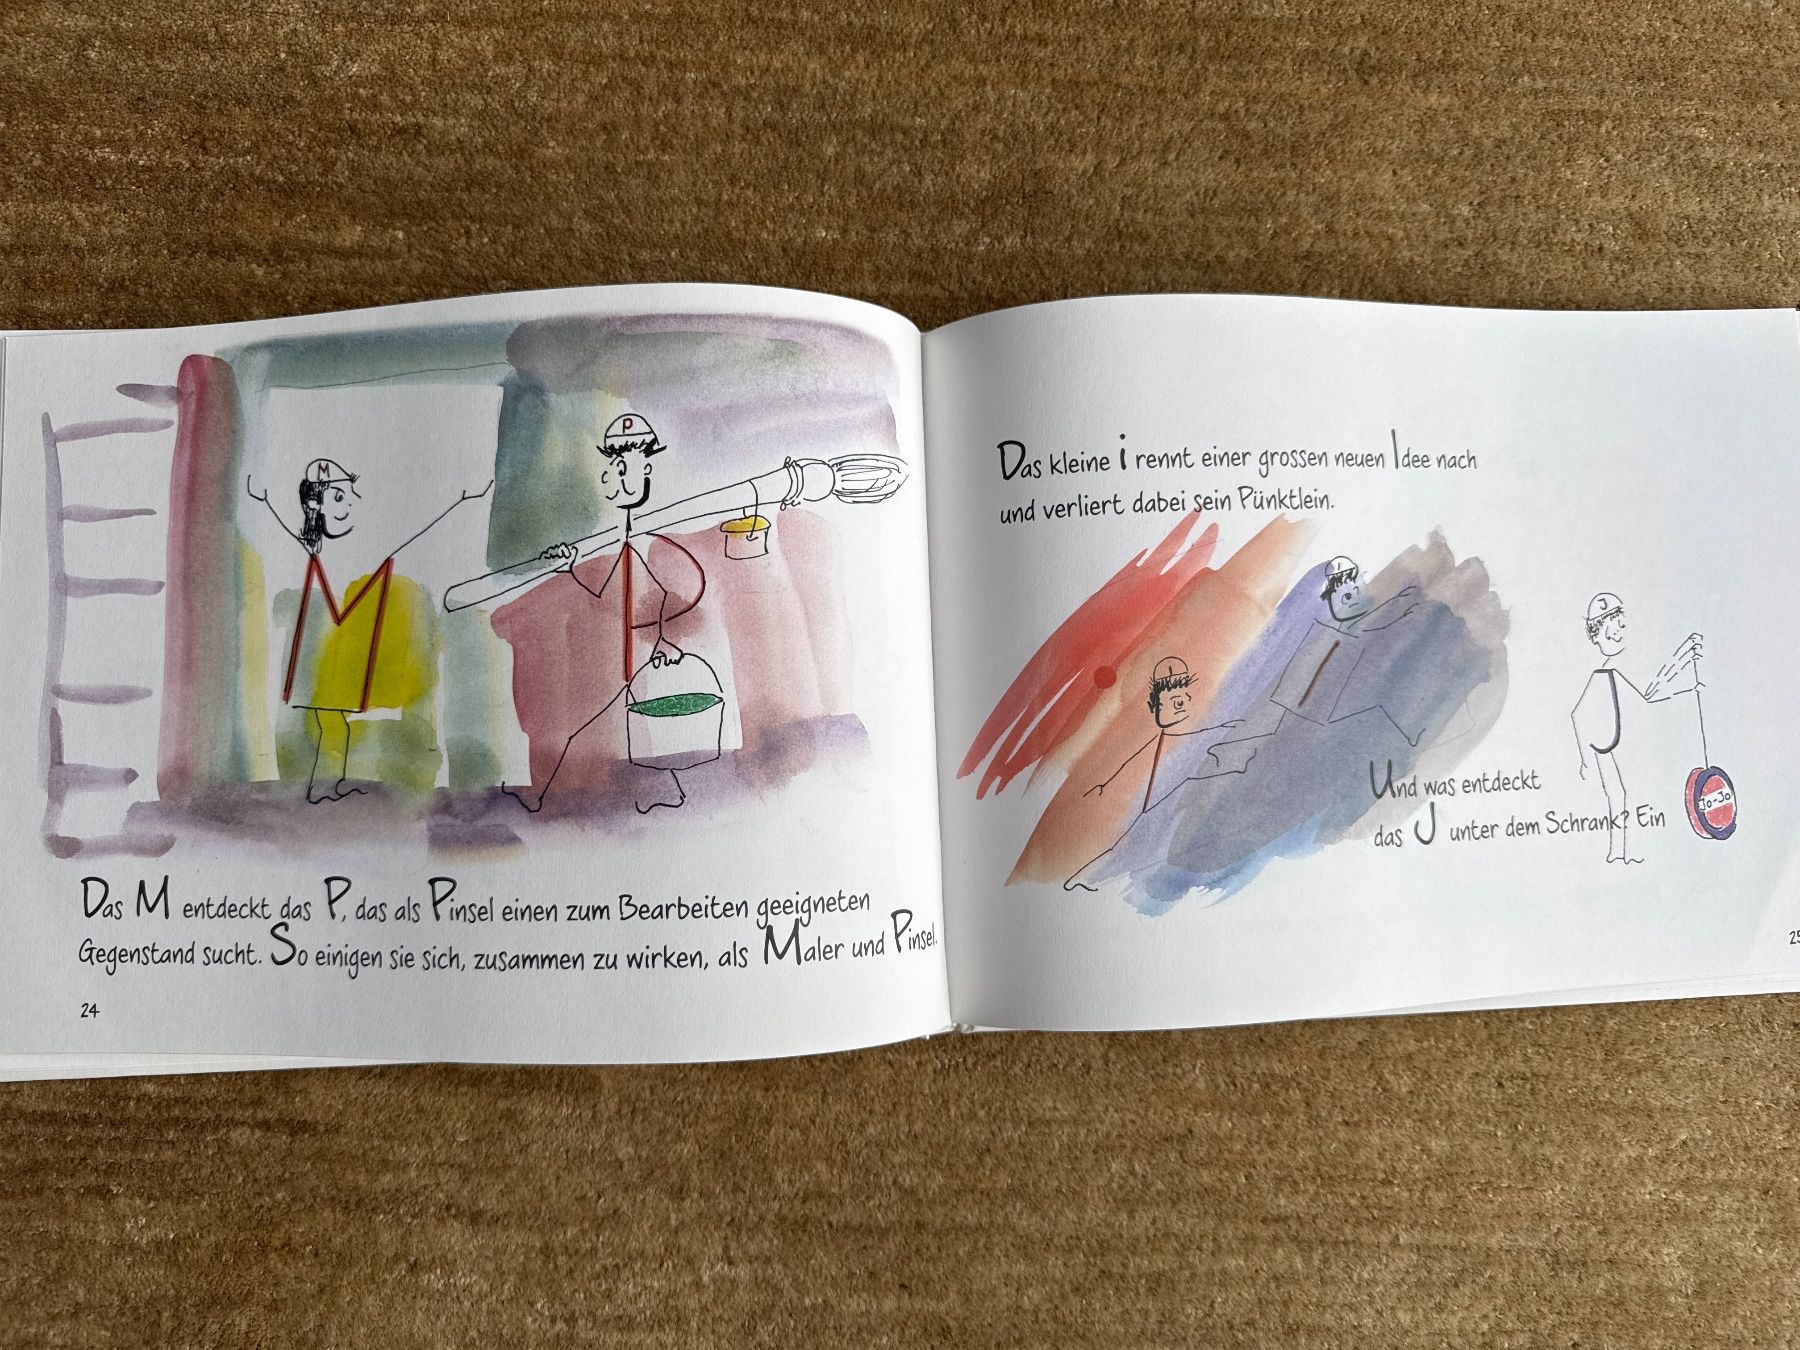 M
P
Das M entdeckt das P, das als Pinsel einen zum Bearbeiten geeigneten
Gegenstand sucht. So einigen sie sich, zusammen zu wirken, als Maler und Pinsel.
24
Das kleine i rennt einer grossen neuen Idee nach
und verliert dabei sein Pünktlein.
I
I
J
Und was entdeckt
das J unter dem Schrank? Ein
Jo-Jo
25